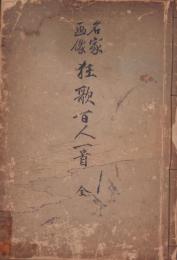 名家画像
狂歌百人一首 全